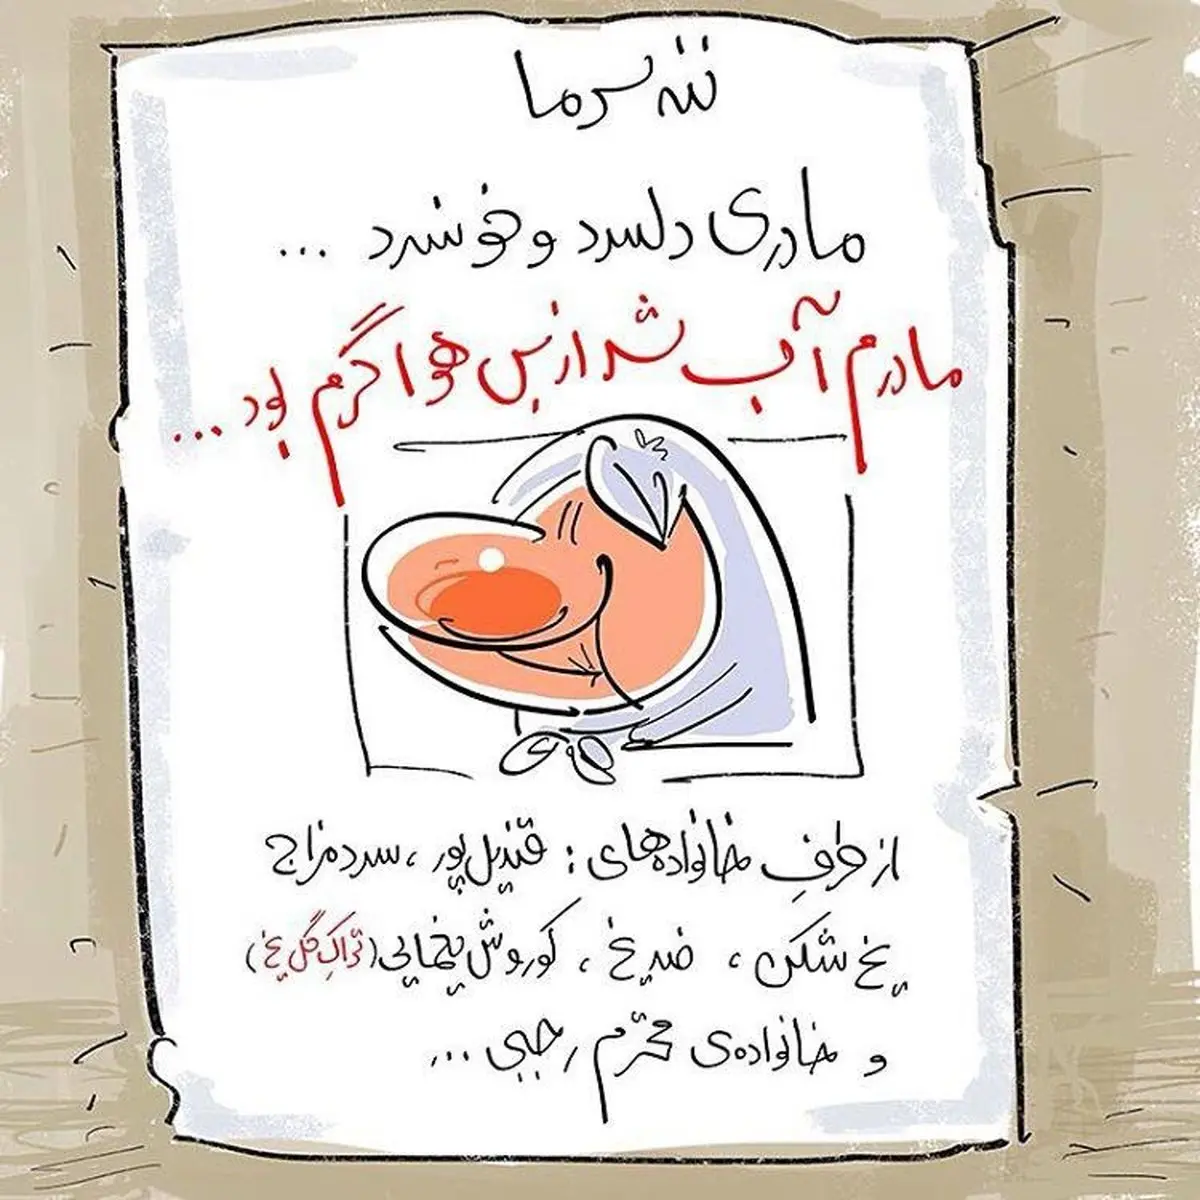 ننه سرما
مادری دلسرد و خونسرد ...
مادرم آب شد از بس هوا گرم بود ...
از طرفِ خانواده‌های : قندیل‌پور ، سردمزاج
یخ شکن ، ضدیخ ، کوروش یخمایی (تراکِ گل یخ)
و خانواده‌ی محترم رجبی ...